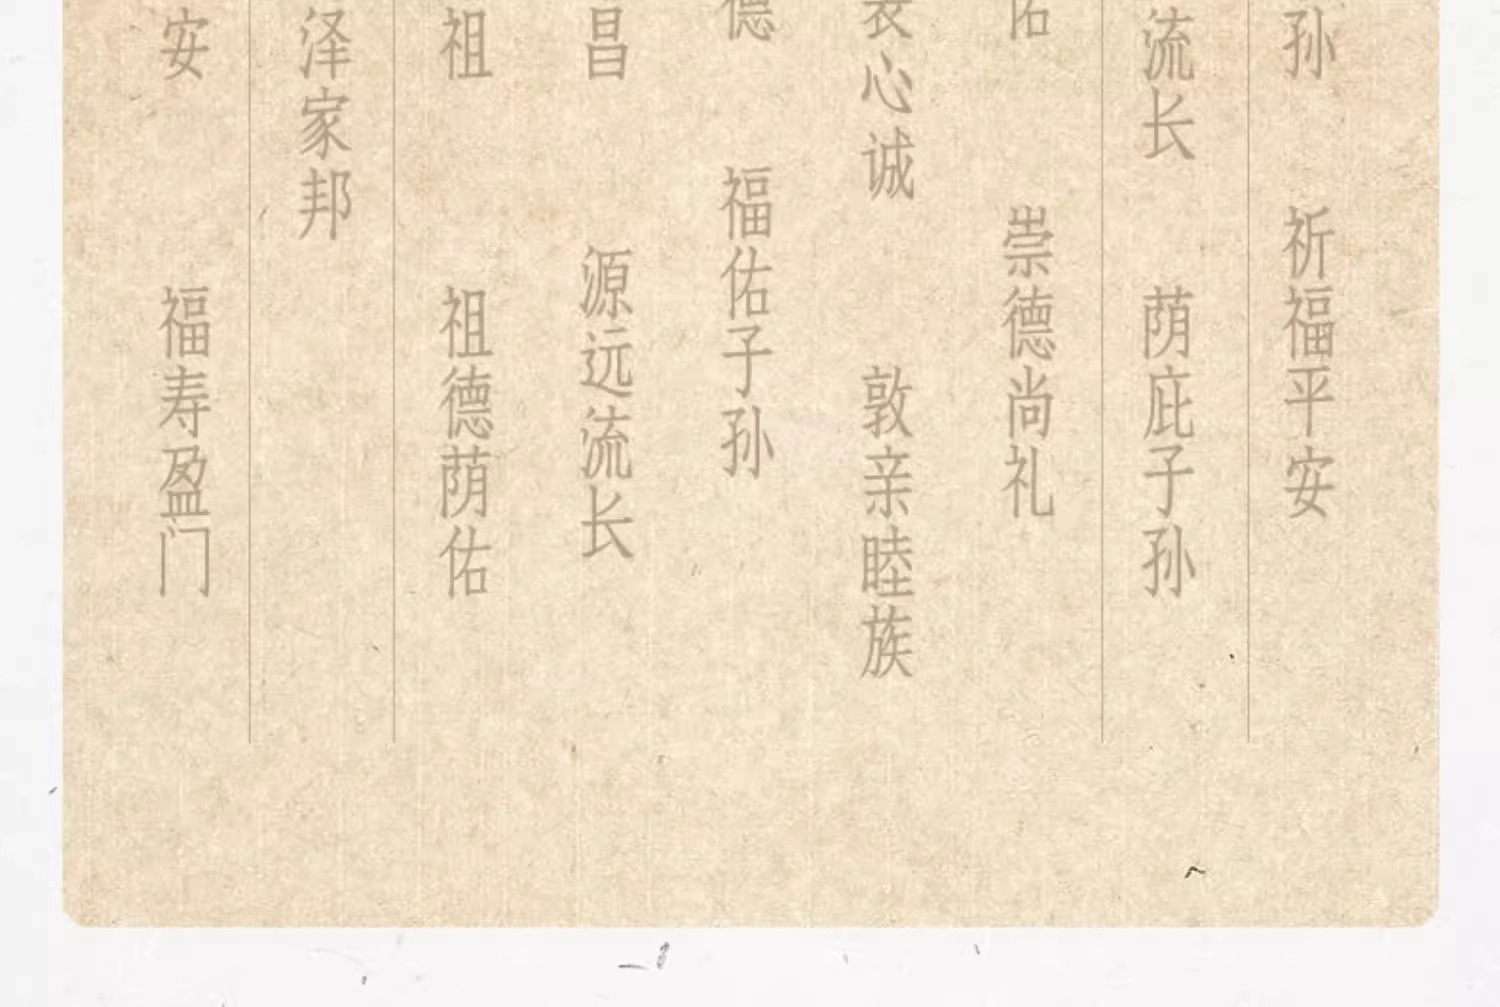 孙 祈福平安
流长 荫庇子孙
佑 崇德尚礼
心诚 敦亲睦族
德 福佑子孙
昌 源远流长
祖 祖德荫佑
泽家邦
安 福寿盈门